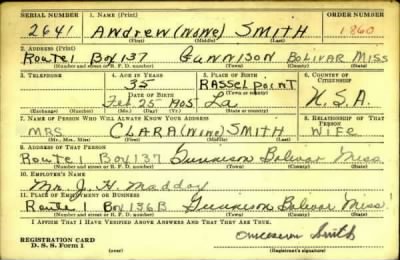 SERIAL NUMBER 1. NAME (Print) ORDER NUMBER
2641 Andrew (none) Smith 1860
(First) (Middle) (Last)
2. ADDRESS (Print)
Route 1 Box 137 Gunnison Bolivar Miss
(Number and street or R. F. D. number) (Town) (County) (State)
3. TELEPHONE 4. AGE IN YEARS 5. PLACE OF BIRTH 6. COUNTRY OF CITIZENSHIP
35 Rassel point
DATE OF BIRTH (Town or county)
Feb 25 1905 La U.S.A.
(Exchange) (Number) (Mo.) (Day) (Yr.) (State or country)
7. NAME OF PERSON WHO WILL ALWAYS KNOW YOUR ADDRESS 8. RELATIONSHIP OF THAT PERSON
Mrs Clara (nine) Smith Wife
(Mr., Mrs., Miss) (First) (Middle) (Last)
9. ADDRESS OF THAT PERSON
Route 1 Box 137 Gunnison Bolivar Miss
(Number and street or R. F. D. number) (Town) (County) (State)
10. EMPLOYER'S NAME
Mr. J. H. Maddox
11. PLACE OF EMPLOYMENT OR BUSINESS
Route 1 Box 136B Gunnison Bolivar Miss
(Number and street or R. F. D. number) (Town) (County) (State)
I AFFIRM THAT I HAVE VERIFIED ABOVE ANSWERS AND THAT THEY ARE TRUE.
Smith
REGISTRATION CARD
D. S. S. Form 1 (over) (Registrant's signature)